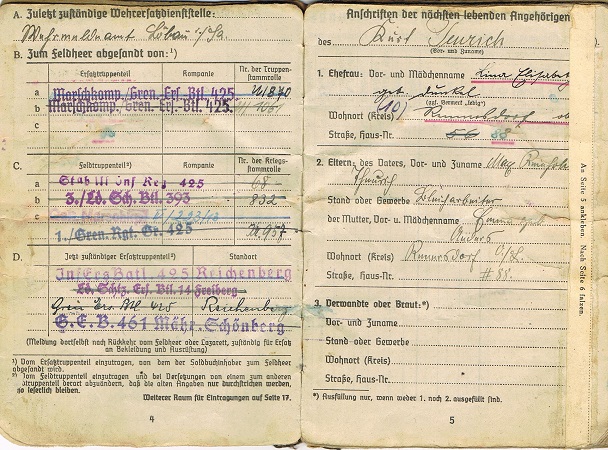 A. Zuletzt zuständige Wehrersatzdienststelle:
Wehrmeldeamt Löbau i/Sa.
B. Zum Feldheer abgesandt von:¹)
Ersatztruppenteil Kompanie Nr. der Truppenstammrolle
a Marschkomp./Gren. Ers. Btl. 425
b Marschkomp. Gren. Ers. Btl. 425.
c
C. Feldtruppenteil²) Kompanie Nr. der Kriegsstammrolle
a Stab III Inf Reg 425 68
b 3./Ld. Sch. Btl. 393 832
c
1./Gren. Rgt. Gr. 425
D. Jetzt zuständiger Ersatztruppenteil²) Standort
Inf Ers Batl. 425 Reichenberg
Ld. Schtz. Ers. Btl. 14 Freiberg
Gren Ers. Btl 425 Reichenberg
G.E.B. 461 Mähr. Schönberg
(Meldung dortselbst nach Rückkehr vom Feldheer oder Lazarett, zuständig für Ersatz
an Bekleidung und Ausrüstung)
¹) Vom Ersatztruppenteil einzutragen, von dem der Soldbuchinhaber zum Feldheer
abgesandt wird.
²) Vom Feldtruppenteil einzutragen und bei Versetzungen von einem zum anderen
Feldtruppenteil derart abzuändern, daß die alten Angaben nur durchstrichen werden,
so leserlich bleiben.
Weiterer Raum für Eintragungen auf Seite 17.
4
Anschriften der nächsten lebenden Angehörigen
des Kurt
(Vor- und Zuname)
1. Ehefrau: Vor- und Mädchenname Lina
(ggf. Vermerk „ledig")
Wohnort (Kreis)
Straße, Haus-Nr.
2. Eltern: des Vaters, Vor- und Zuname Max
Stand oder Gewerbe
der Mutter, Vor- u. Mädchenname Emma
Wohnort (Kreis)
Straße, Haus-Nr. # 88.
3. Verwandte oder Braut:*)
Vor- und Zuname
Stand oder Gewerbe
Wohnort (Kreis)
Straße, Haus-Nr.
*) Ausfüllung nur, wenn weder 1. noch 2. ausgefüllt sind.
5
An Seite 5 ankleben. Nach Seite 6 falzen.